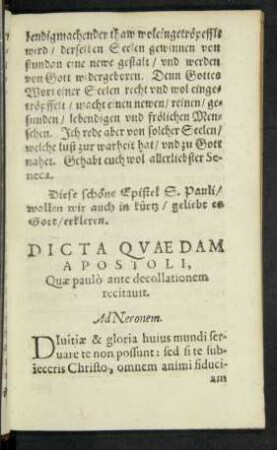 bendigmachender thaw woleingetröpeffle
wird / derselten Seelen gewinnen von
stundan eine newe gestalt / vnd werden
von Gott widergeboren. Denn Gottes
Wort einer Seelen recht vnd wol einge-
tröpffelt / macht einen newen / reinen / ge-
sunden / lebendigen vnd frölichen Men-
schen. Ich rede aber von solcher Seelen /
welche lust zur warheit hat / vnd zu Gott
nahet. Gehabt euch wol allerliebster Se-
neca.
Diese schöne Epistel S. Pauli /
wollen wir auch in kürtz / geliebt es
Gott / erkleren.
DICTA QVAEDAM
APOSTOLI,
Quæ paulò ante decollationem
recitauit.
Ad Neronem.
DIuitiæ & gloria huius mundi ser-
uare te non possunt: sed si te sub-
ieceris Christo, omnem animi fiduci-
am